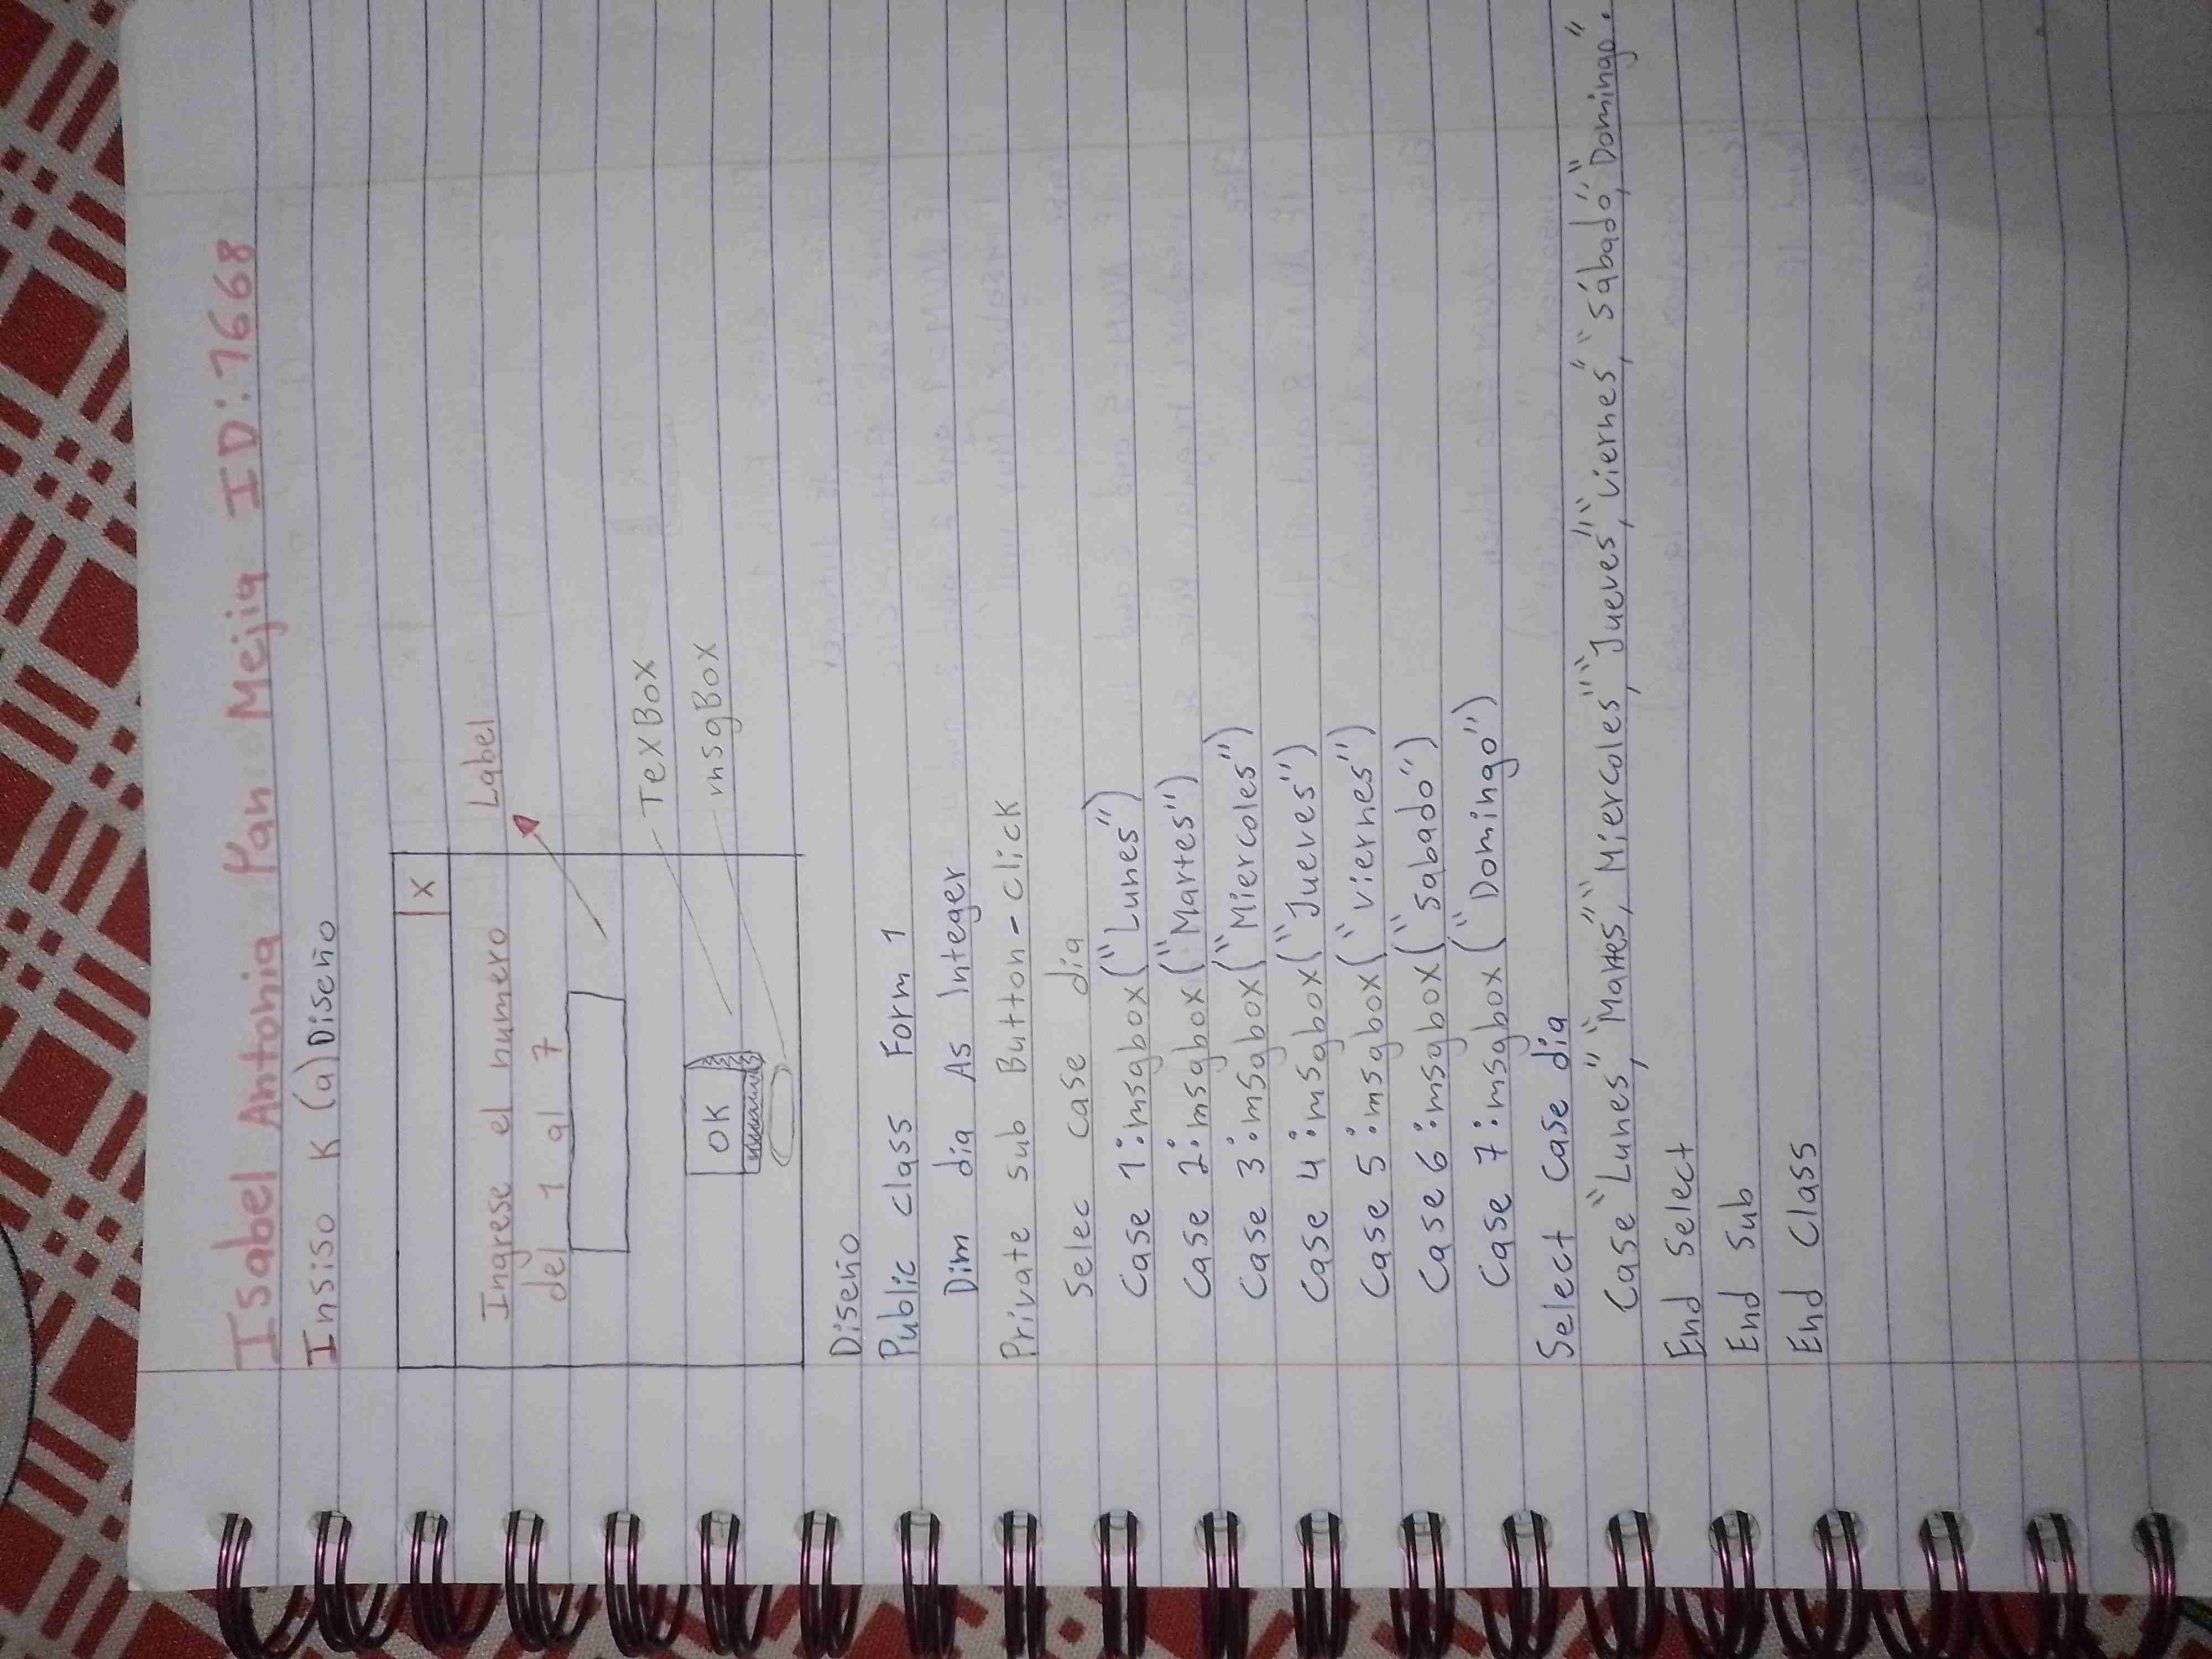 Isabel Antonia Pan Mejia ID:1668
Insiso K (a) Diseño
X
Ingrese el numero
del 1 al 7
Label
OK
TexBox
msgBox
Diseño
Public class Form 1
Dim dia As Integer
Private sub Button-Click
Selec case dia
Case 1:msgbox("Lunes")
Case 2:msgbox("Martes")
Case 3:msgbox("Miercoles")
Case 4:msgbox("Jueves")
Case 5:msgbox("viernes")
Case 6:msgbox("Sabado")
Case 7:msgbox("Domingo")
Select case dia
Case "Lunes","Martes","Miercoles","Jueves","viernes","Sábado","Domingo".
End Select
End Sub
End Class